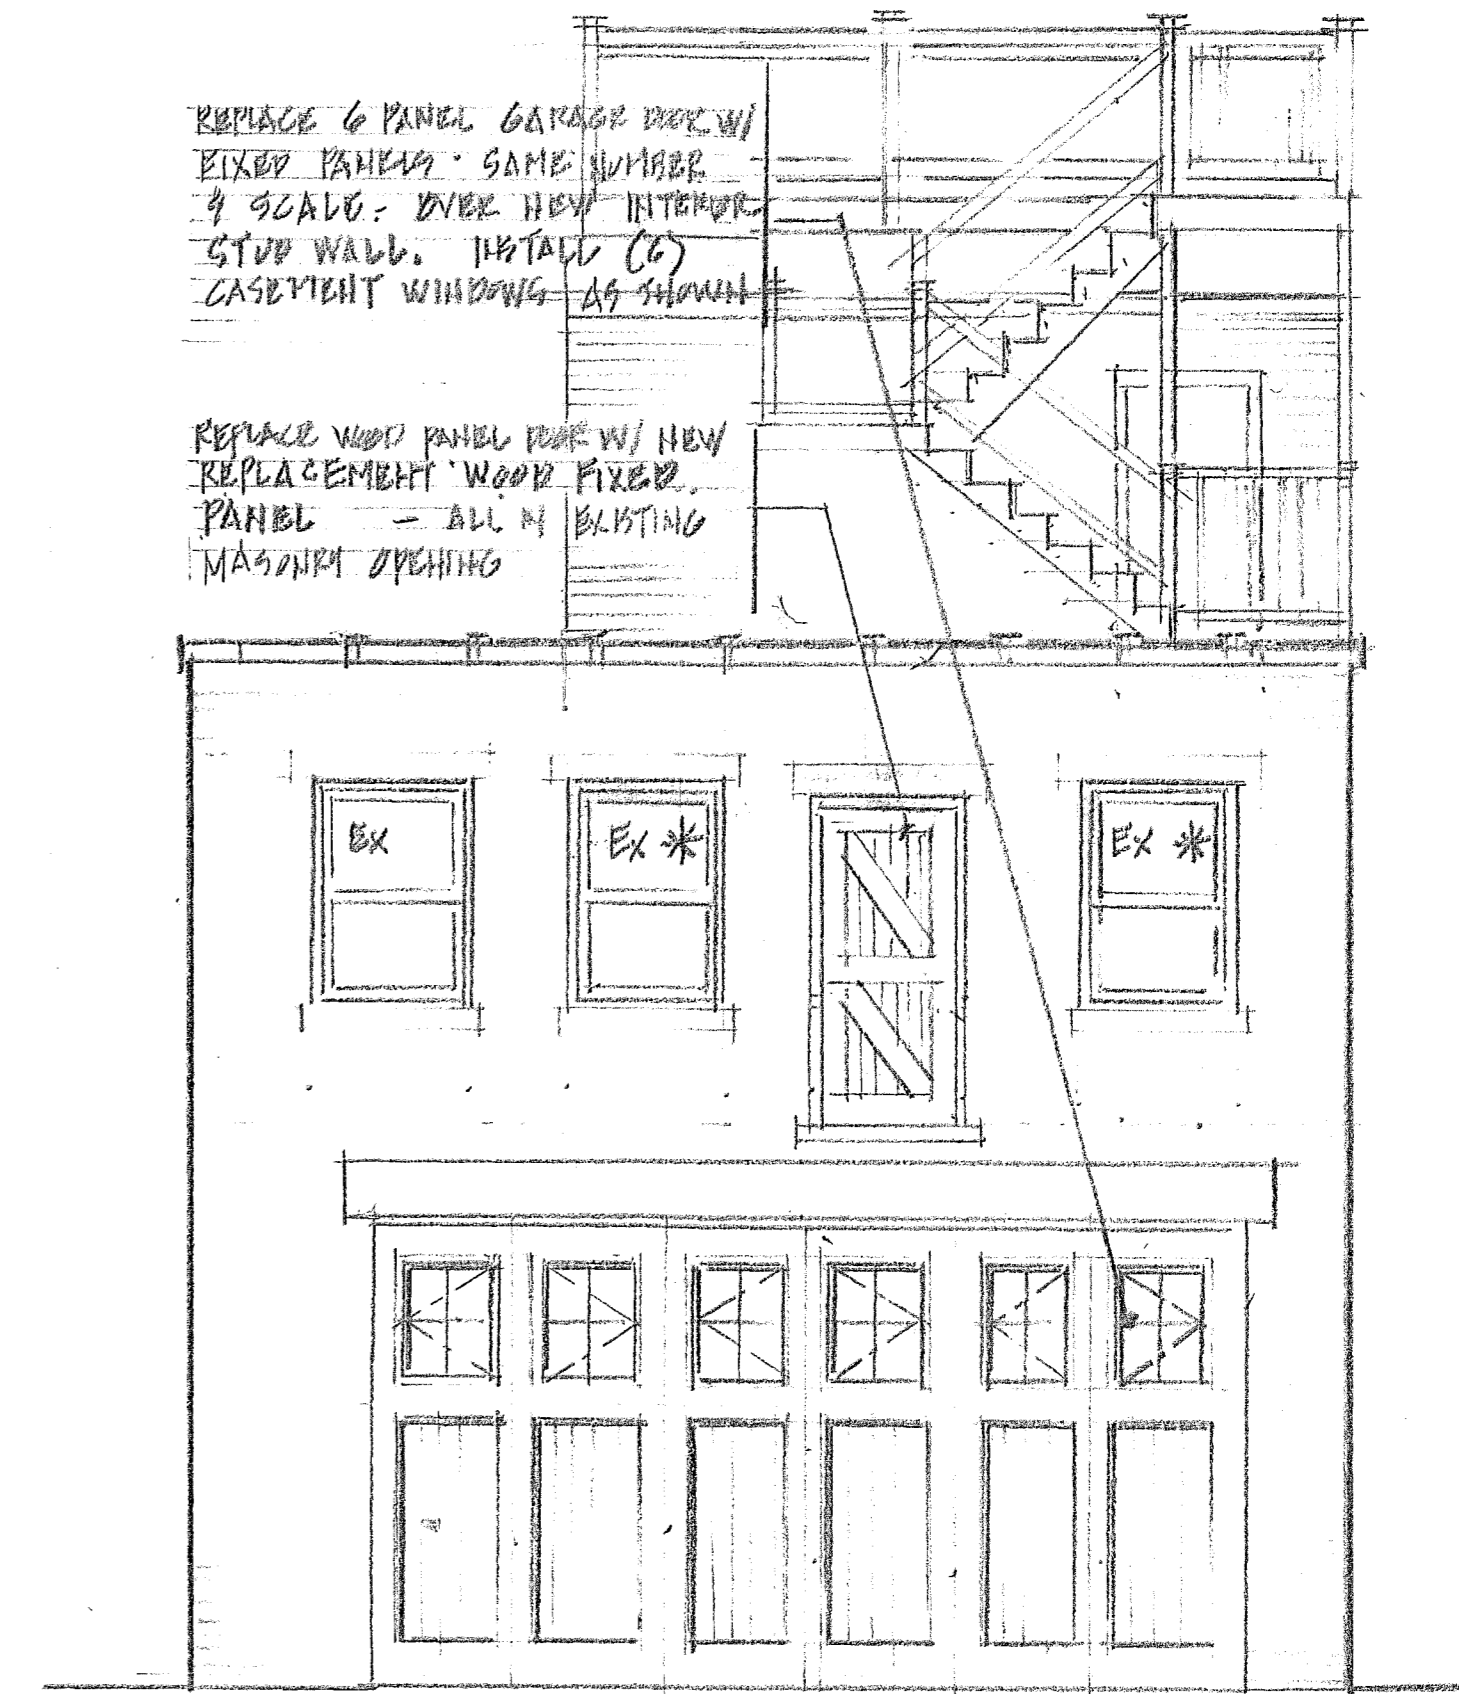 REPLACE 6 PANEL GARAGE DOOR W/
FIXED PANELS · SAME NUMBER
& SCALE - OVER NEW INTERIOR
STUD WALL. INSTALL (6)
CASEMENT WINDOWS AS SHOWN
REPLACE WOOD PANEL DOOR W/ NEW
REPLACEMENT WOOD FIXED
PANEL — ALL IN EXISTING
MASONRY OPENING
EX
EX *
EX *